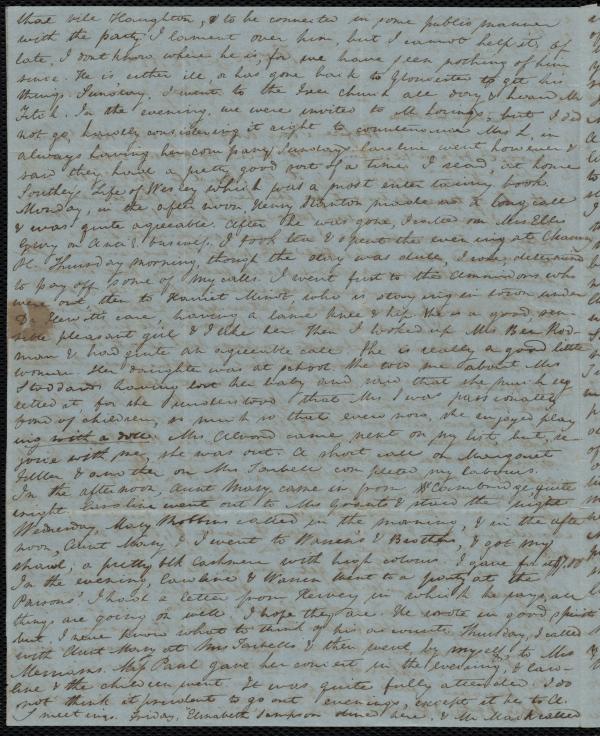 that vile Haughton, & to be connected in some public manner
with the party. I lament over him, but I cannot help it, of
late, I dont know where he is, for we have seen nothing of him
since. He is either ill, or has gone back to Gloucester to get his
things. Sunday, I went to the Free church all day & heard Mr
Fitch. In the evening, we were invited to M Lorings, but I did
not go, hardly considering it right to countenance Mrs L, in
always having her company Sundays. Caroline went however &
said they had a pretty good sort of a time. I read, at home
Southey's Life of Wesley which was a most entertaining book.
Monday, in the afternoon, Henry Stanton made me a long call
& was quite agreeable. After he was gone, I called on Mrs Ellis
Gray on Anti S. business. I took tea & spent the evening at Chauncy
Pl. Thursday morning, though the day was dull, I was determined
to pay off some of my calls. I went first to the Ammidons who
were out, then to Harriet Minot, who is staying in town under
Dr Hewitts care, having a lame knee & hip. She is a good, sen-
sible pleasant girl & I like her. Then I looked up Mrs Ben Rod-
man & had quite an agreeable call. She is really a good little
woman. Her daughter was at school. She told me about Mrs
Stoddards having lost her baby and said that she much reg
retted it for she understood that Mrs S was passionately
fond of children, so much so that even now, she enjoyed play
ing with a doll. Mrs Alvord came next on my list, but, re-
joice with me, she was out. A short call on Margaret
Fuller & another on Mrs Sarbell completed my labours.
In the afternoon, Aunt Mary came in from W Cambridge, quite
Caroline went out to Mrs Grants & staid the night
Wednesday, Mary Robbins called in the morning, & in the after
noon, Aunt Mary & I went to Warren's & Brothers, & got my
shawl; a pretty blk Cashmere with high colours. I gave for it $7.00
In the evening, Caroline & Warren went to a party at the
Parsons' I had a letter from Hervey in which he says, all
things are going on well. I hope they are. He wrote in good spirits
but, I never know what to think of his accounts. Thursday, I called
with Aunt Mary at Mrs Sarbells & then went by myself to Mrs
Merriams. Miss Paul gave her concert in the evening, & Caro-
line & the children went. It was quite fully attended. I do
not think it prudent to go out evenings, except it be to A.
S meetings. Friday, Elisabeth Simpson dined here, & Mr Mack called